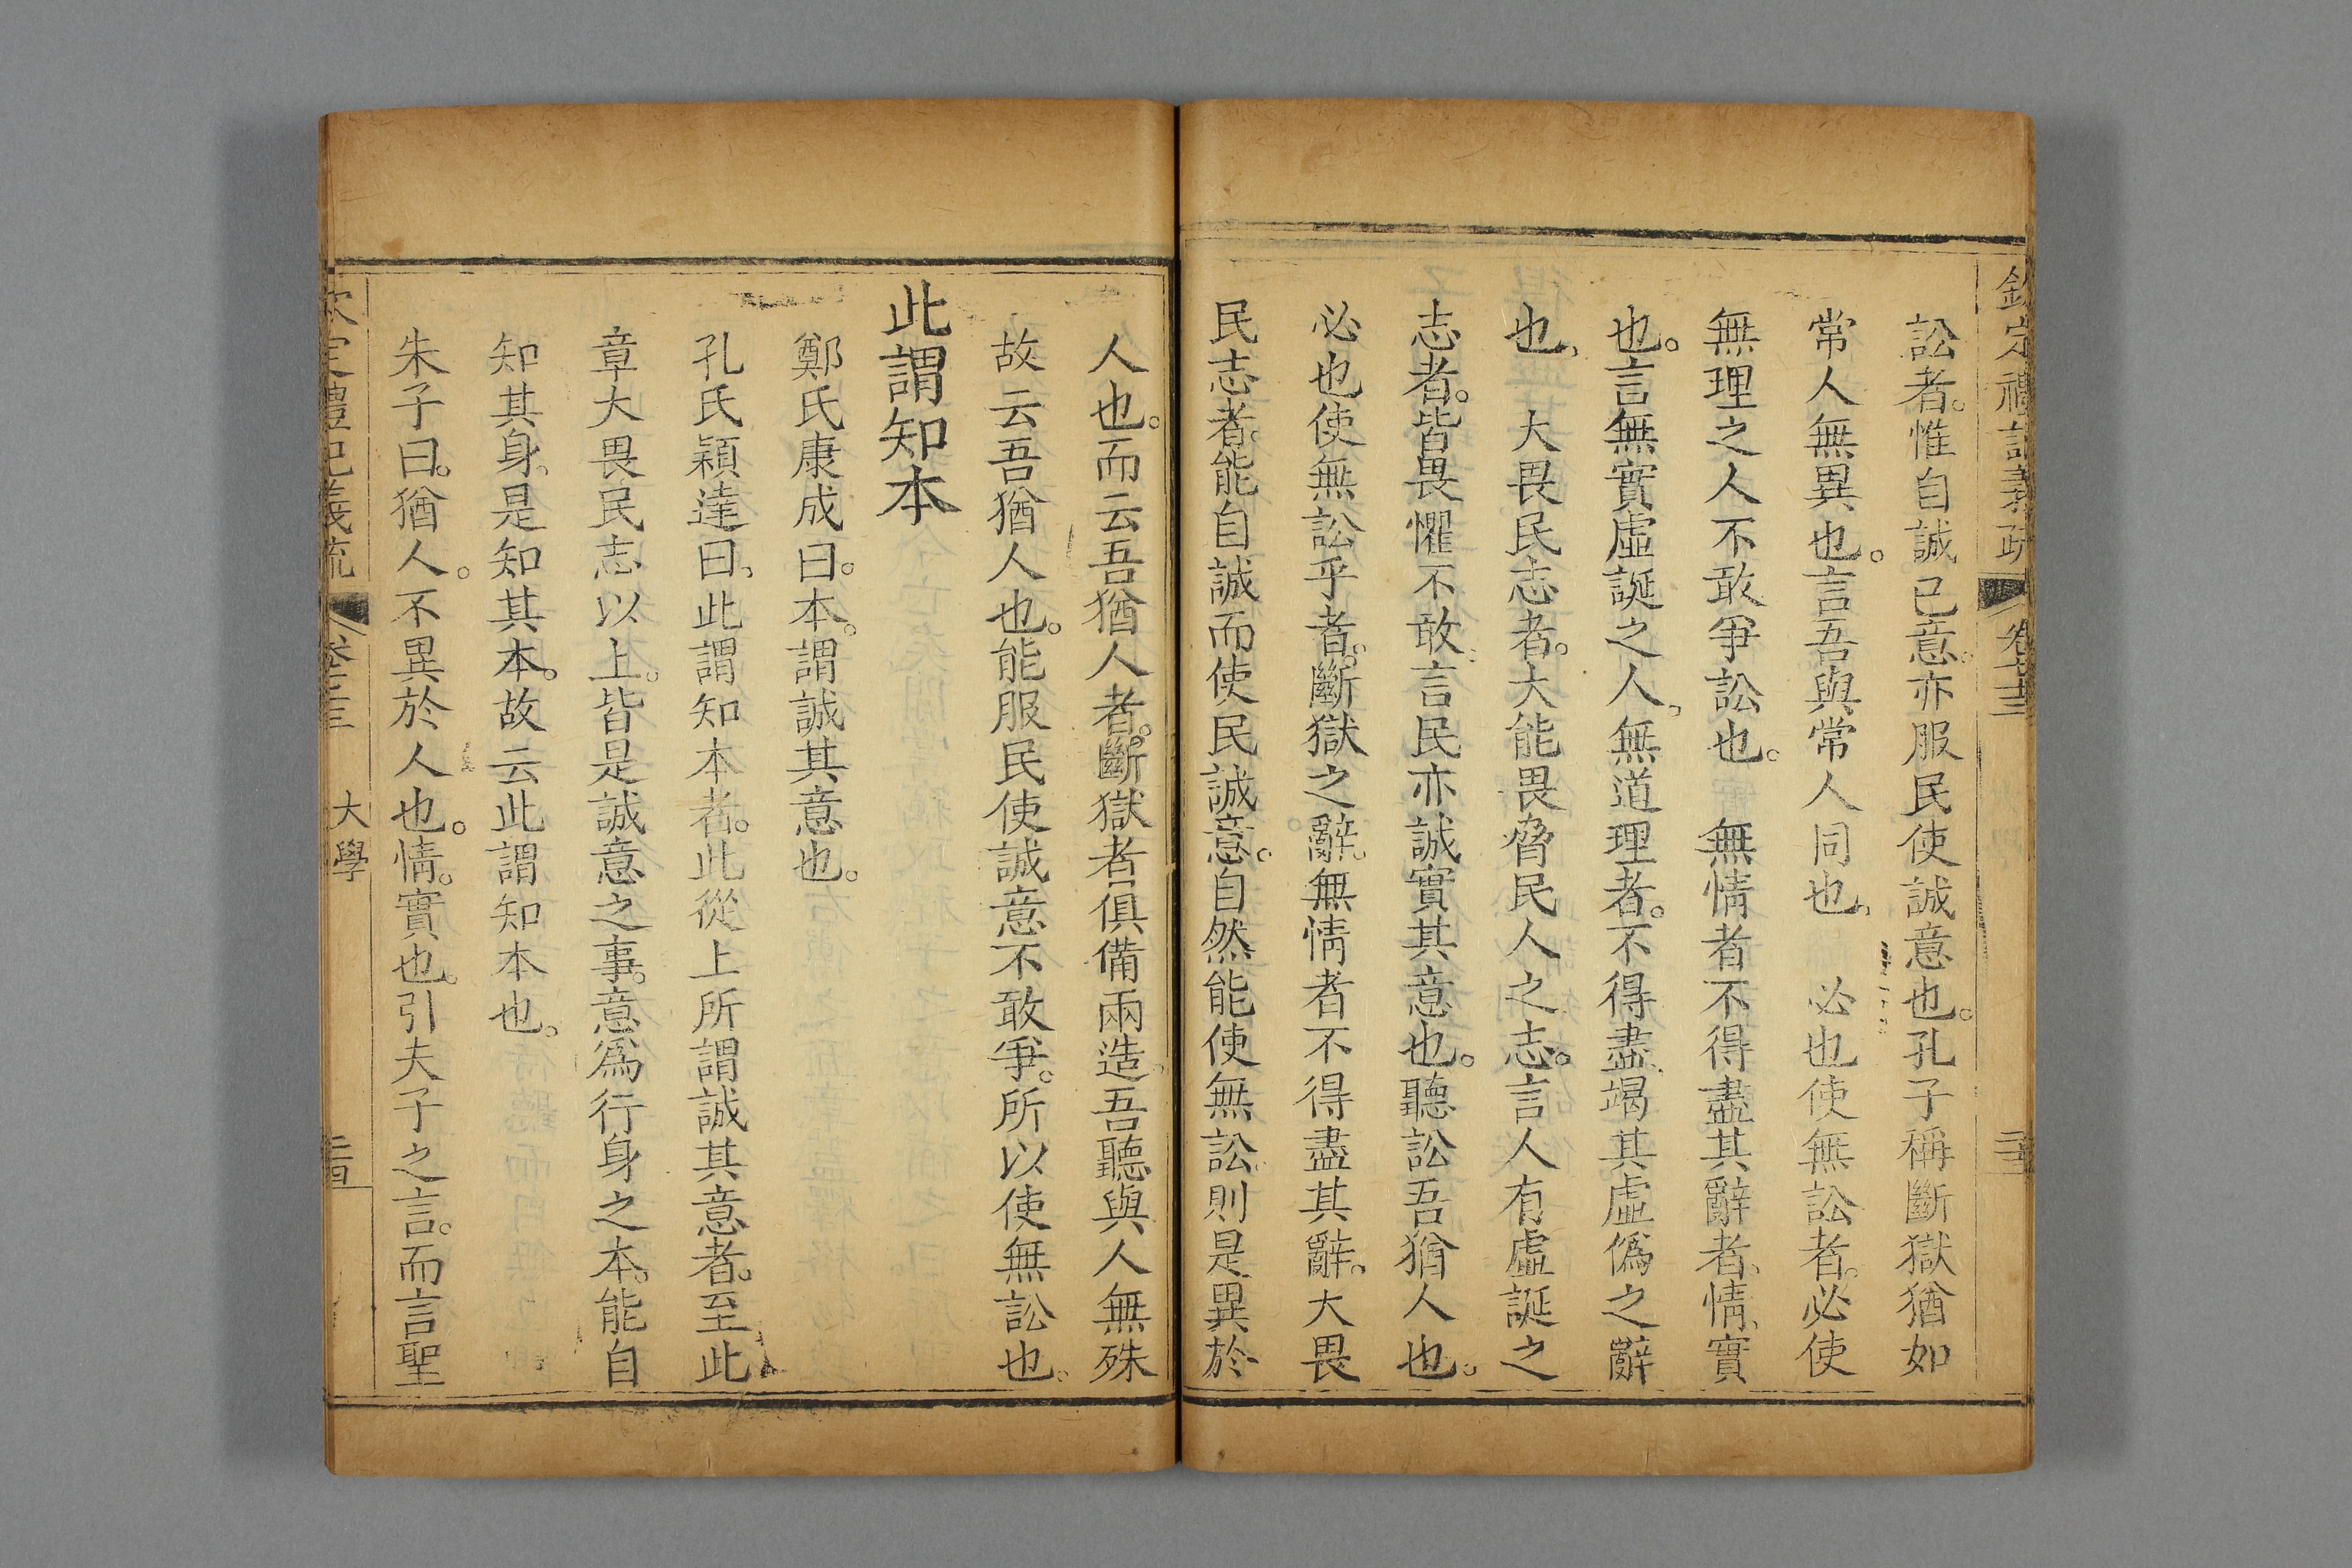 欽定禮記義疏 卷七十三 二十三
訟者。惟自誠己意。亦服民使誠意也。孔子稱斷獄猶如
常人無異也。言吾與常人同也。 必也使無訟者。必使
無理之人不敢爭訟也。 無情者不得盡其辭者。情、實
也。言無實虛誕之人、無道理者。不得盡竭其虛僞之辭
也、 大畏民志者。大能畏脅民人之志。言人有虛誕之
志者。皆畏懼不敢言民亦誠實其意也。聽訟吾猶人也。
必也使無訟乎者。斷獄之辭。無情者不得盡其辭。大畏
民志者。能自誠而使民誠意。自然能使無訟。則是異於
人也。而云吾猶人者。斷獄者俱備兩造。吾聽與人無殊
故云吾猶人也。能服民使誠意不敢爭。所以使無訟也。
此謂知本
鄭氏康成曰。本。謂誠其意也。
孔氏穎達曰、此謂知本者。此從上所謂誠其意者。至此
章大畏民志以上。皆是誠意之事。意爲行身之本。能自
知其身。是知其本。故云此謂知本也。
朱子曰。猶人。不異於人也。情。實也。引夫子之言。而言聖
大學 二十四